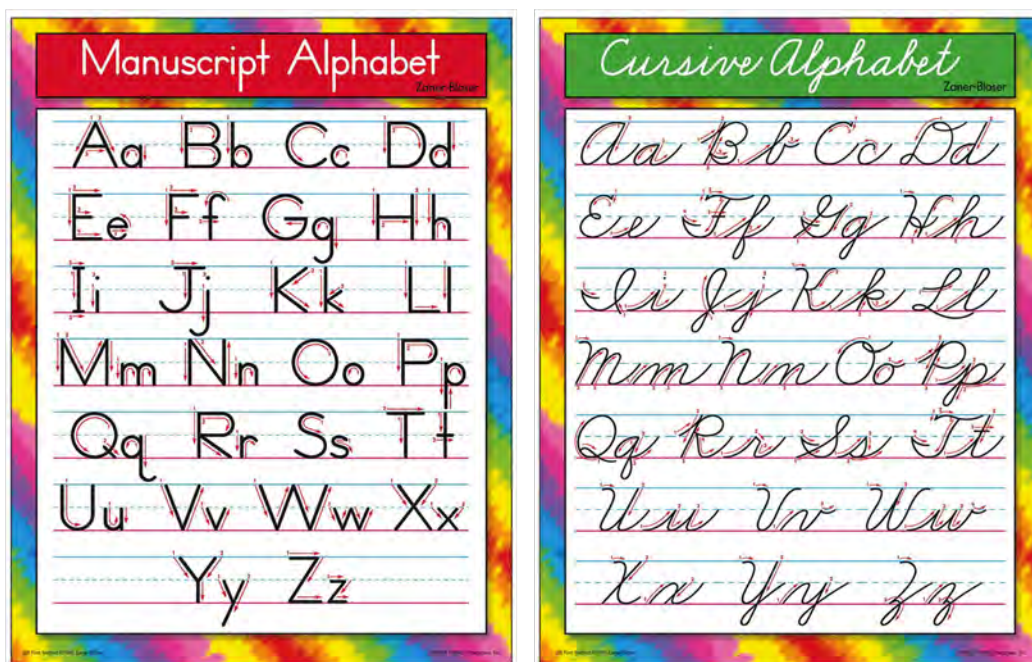 Manuscript Alphabet
Zaner-Bloser
Aa Bb Cc Dd
Ee Ff Gg Hh
Ii Jj Kk Ll
Mm Nn Oo Pp
Qq Rr Ss Tt
Uu Vv Ww Xx
Yy Zz
Cursive Alphabet
Zaner-Bloser
Aa Bb Cc Dd
Ee Ff Gg Hh
Ii Jj Kk Ll
Mm Nn Oo Pp
Qq Rr Ss Tt
Uu Vv Ww
Xx Yy Zz